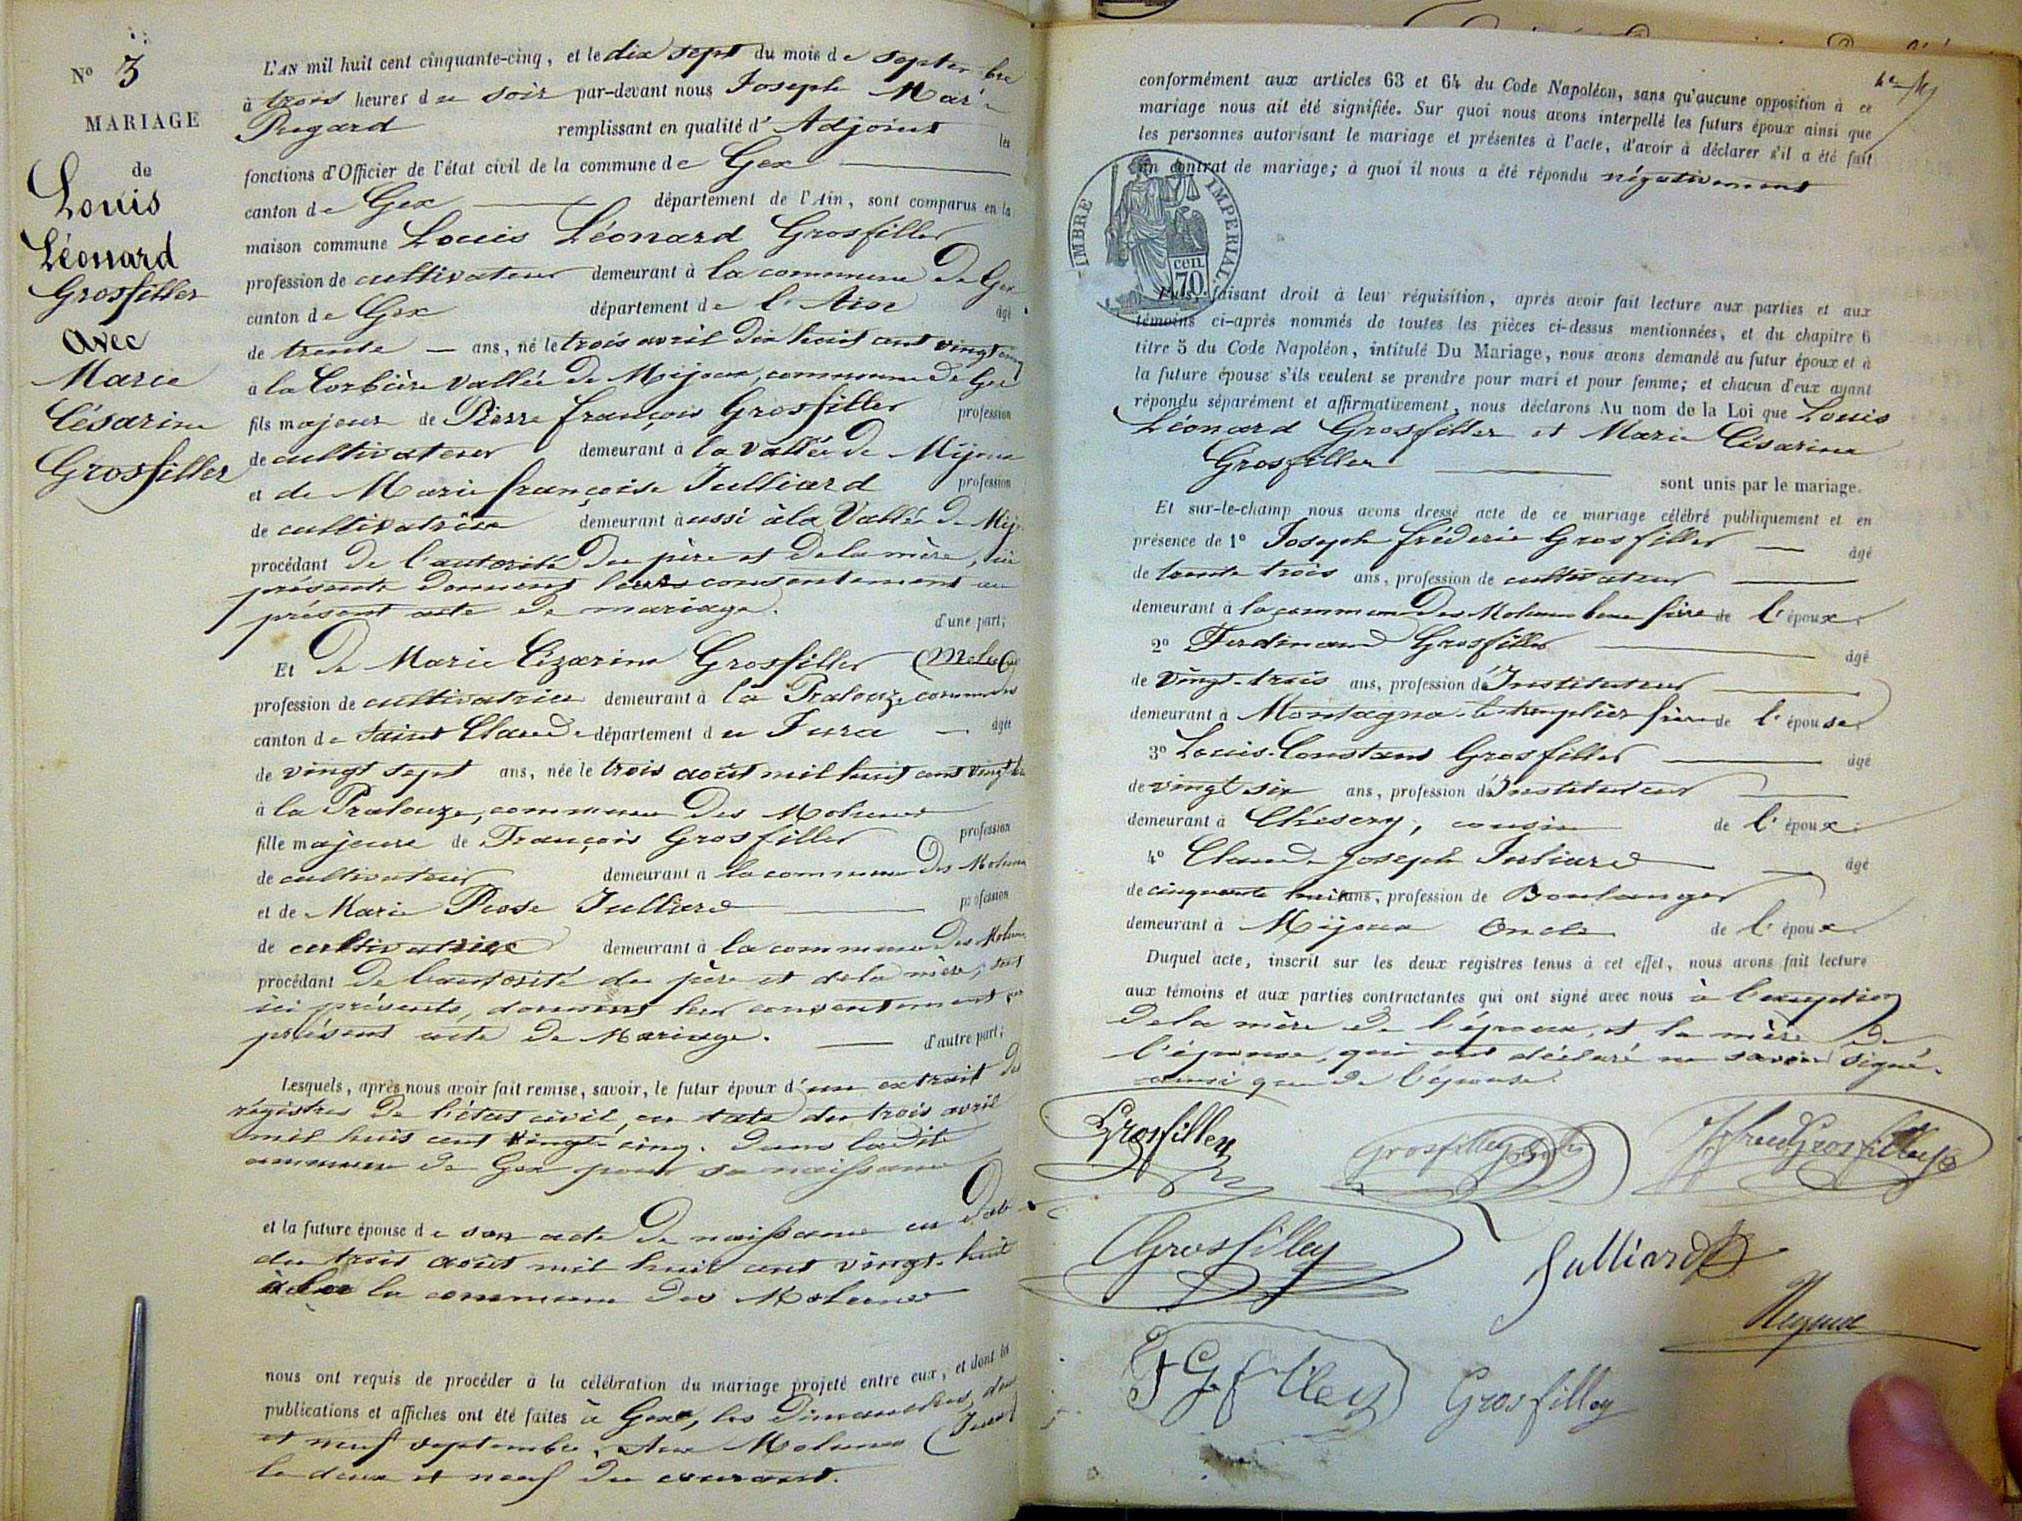 N° 3
MARIAGE
de
Louis
Léonard
Grosfiller
avec
Marie
Césarine
Grosfiller
L'AN mil huit cent cinquante-cinq, et le dix sept du mois de septembre
à trois heures du soir par-devant nous Joseph Marie
Regard remplissant en qualité d'Adjoint les
fonctions d'Officier de l'état civil de la commune de Gex
canton de Gex département de l'Ain, sont comparus en la
maison commune Louis Léonard Grosfiller
profession de cultivateur demeurant à la commune de Gex
canton de Gex département de l'Ain âgé
de trente ans, né le trois avril dix huit cent vingt cinq
à la Corbière vallée de Mijoux, commune de Gex
fils majeur de Pierre françois Grosfiller profession
de cultivateur demeurant à la vallée de Mijoux
et de Marie françoise Julliard profession
de cultivatrice demeurant aussi à la Vallée de Mij
procédant de l'autorité du père et de la mère, ici
présents donnent leurs consentement au
présent acte de mariage.
d'une part;
Et de Marie Cézarine Grosfiller
profession de cultivatrice demeurant à la Pralouze commune des
canton de Saint Claude département du Jura âgée
de vingt sept ans, née le trois août mil huit cent vingt huit
à la Pralouze, commune Des Molunes
fille majeure de François Grosfiller profession
de cultivateur demeurant à la commune Des Molunes
et de Marie Rose Julliard profession
de cultivatrice demeurant à la commune Des Molunes
procédant de l'autorité du père et de la mère, tous
ici présents, donnent leur consentement au
présent acte de Mariage.
d'autre part;
Lesquels, après nous avoir fait remise, savoir, le futur époux d'un extrait des
régistres de l'état civil, en date du trois avril
mil huit cent vingt cinq. dans ladite
commune de Gex pour sa naissance
et la future épouse de son acte de naissance en date
du trois août mil huit cent vingt-huit
la commune des Molunes
nous ont requis de procéder à la célébration du mariage projeté entre eux, et dont les
publications et affiches ont été faites à Gex, les Dimanches, deux
et neuf septembre, Aux Molunes (Jura)
le deux et neuf du courant.
conformément aux articles 63 et 64 du Code Napoléon, sans qu'aucune opposition à ce
mariage nous ait été signifiée. Sur quoi nous avons interpellé les futurs époux ainsi que
les personnes autorisant le mariage et présentes à l'acte, d'avoir à déclarer s'il a été fait
un contrat de mariage; à quoi il nous a été répondu négativement
TIMBRE IMPERIAL
cen.
70.
Puis, faisant droit à leur réquisition, après avoir fait lecture aux parties et aux
témoins ci-après nommés de toutes les pièces ci-dessus mentionnées, et du chapitre 6
titre 5 du Code Napoléon, intitulé Du Mariage, nous avons demandé au futur époux et à
la future épouse s'ils veulent se prendre pour mari et pour femme; et chacun d'eux ayant
répondu séparément et affirmativement, nous déclarons Au nom de la Loi que Louis
Léonard Grosfiller et Marie Césarine
Grosfiller
sont unis par le mariage.
Et sur-le-champ nous avons dressé acte de ce mariage célébré publiquement et en
présence de 1° Joseph fréderic Grosfiller âgé
de trente trois ans, profession de cultivateur
demeurant à la commune des Molunes beau frère de l'époux
2° Ferdinand Grosfiller âgé
de vingt-trois ans, profession d'Instituteur
demeurant à Montagna-le-templier frère de l'épouse
3° Louis-Constant Grosfiller âgé
de vingt six ans, profession d'Instituteur
demeurant à Chésery, cousin de l'époux
4° Claude Joseph Juliard âgé
de cinquante huit ans, profession de Boulanger
demeurant à Mijoux Oncle de l'époux
Duquel acte, inscrit sur les deux régistres tenus à cet effet, nous avons fait lecture
aux témoins et aux parties contractantes qui ont signé avec nous à l'exception
de la mère de l'époux, et la mère de
l'épouse, qui ont déclaré ne savoir signé.
ainsi que de l'épouse.
Grosfilley
Grosfilley
Grosfilley
Grosfilley
Julliard
Regard
Grosfilley